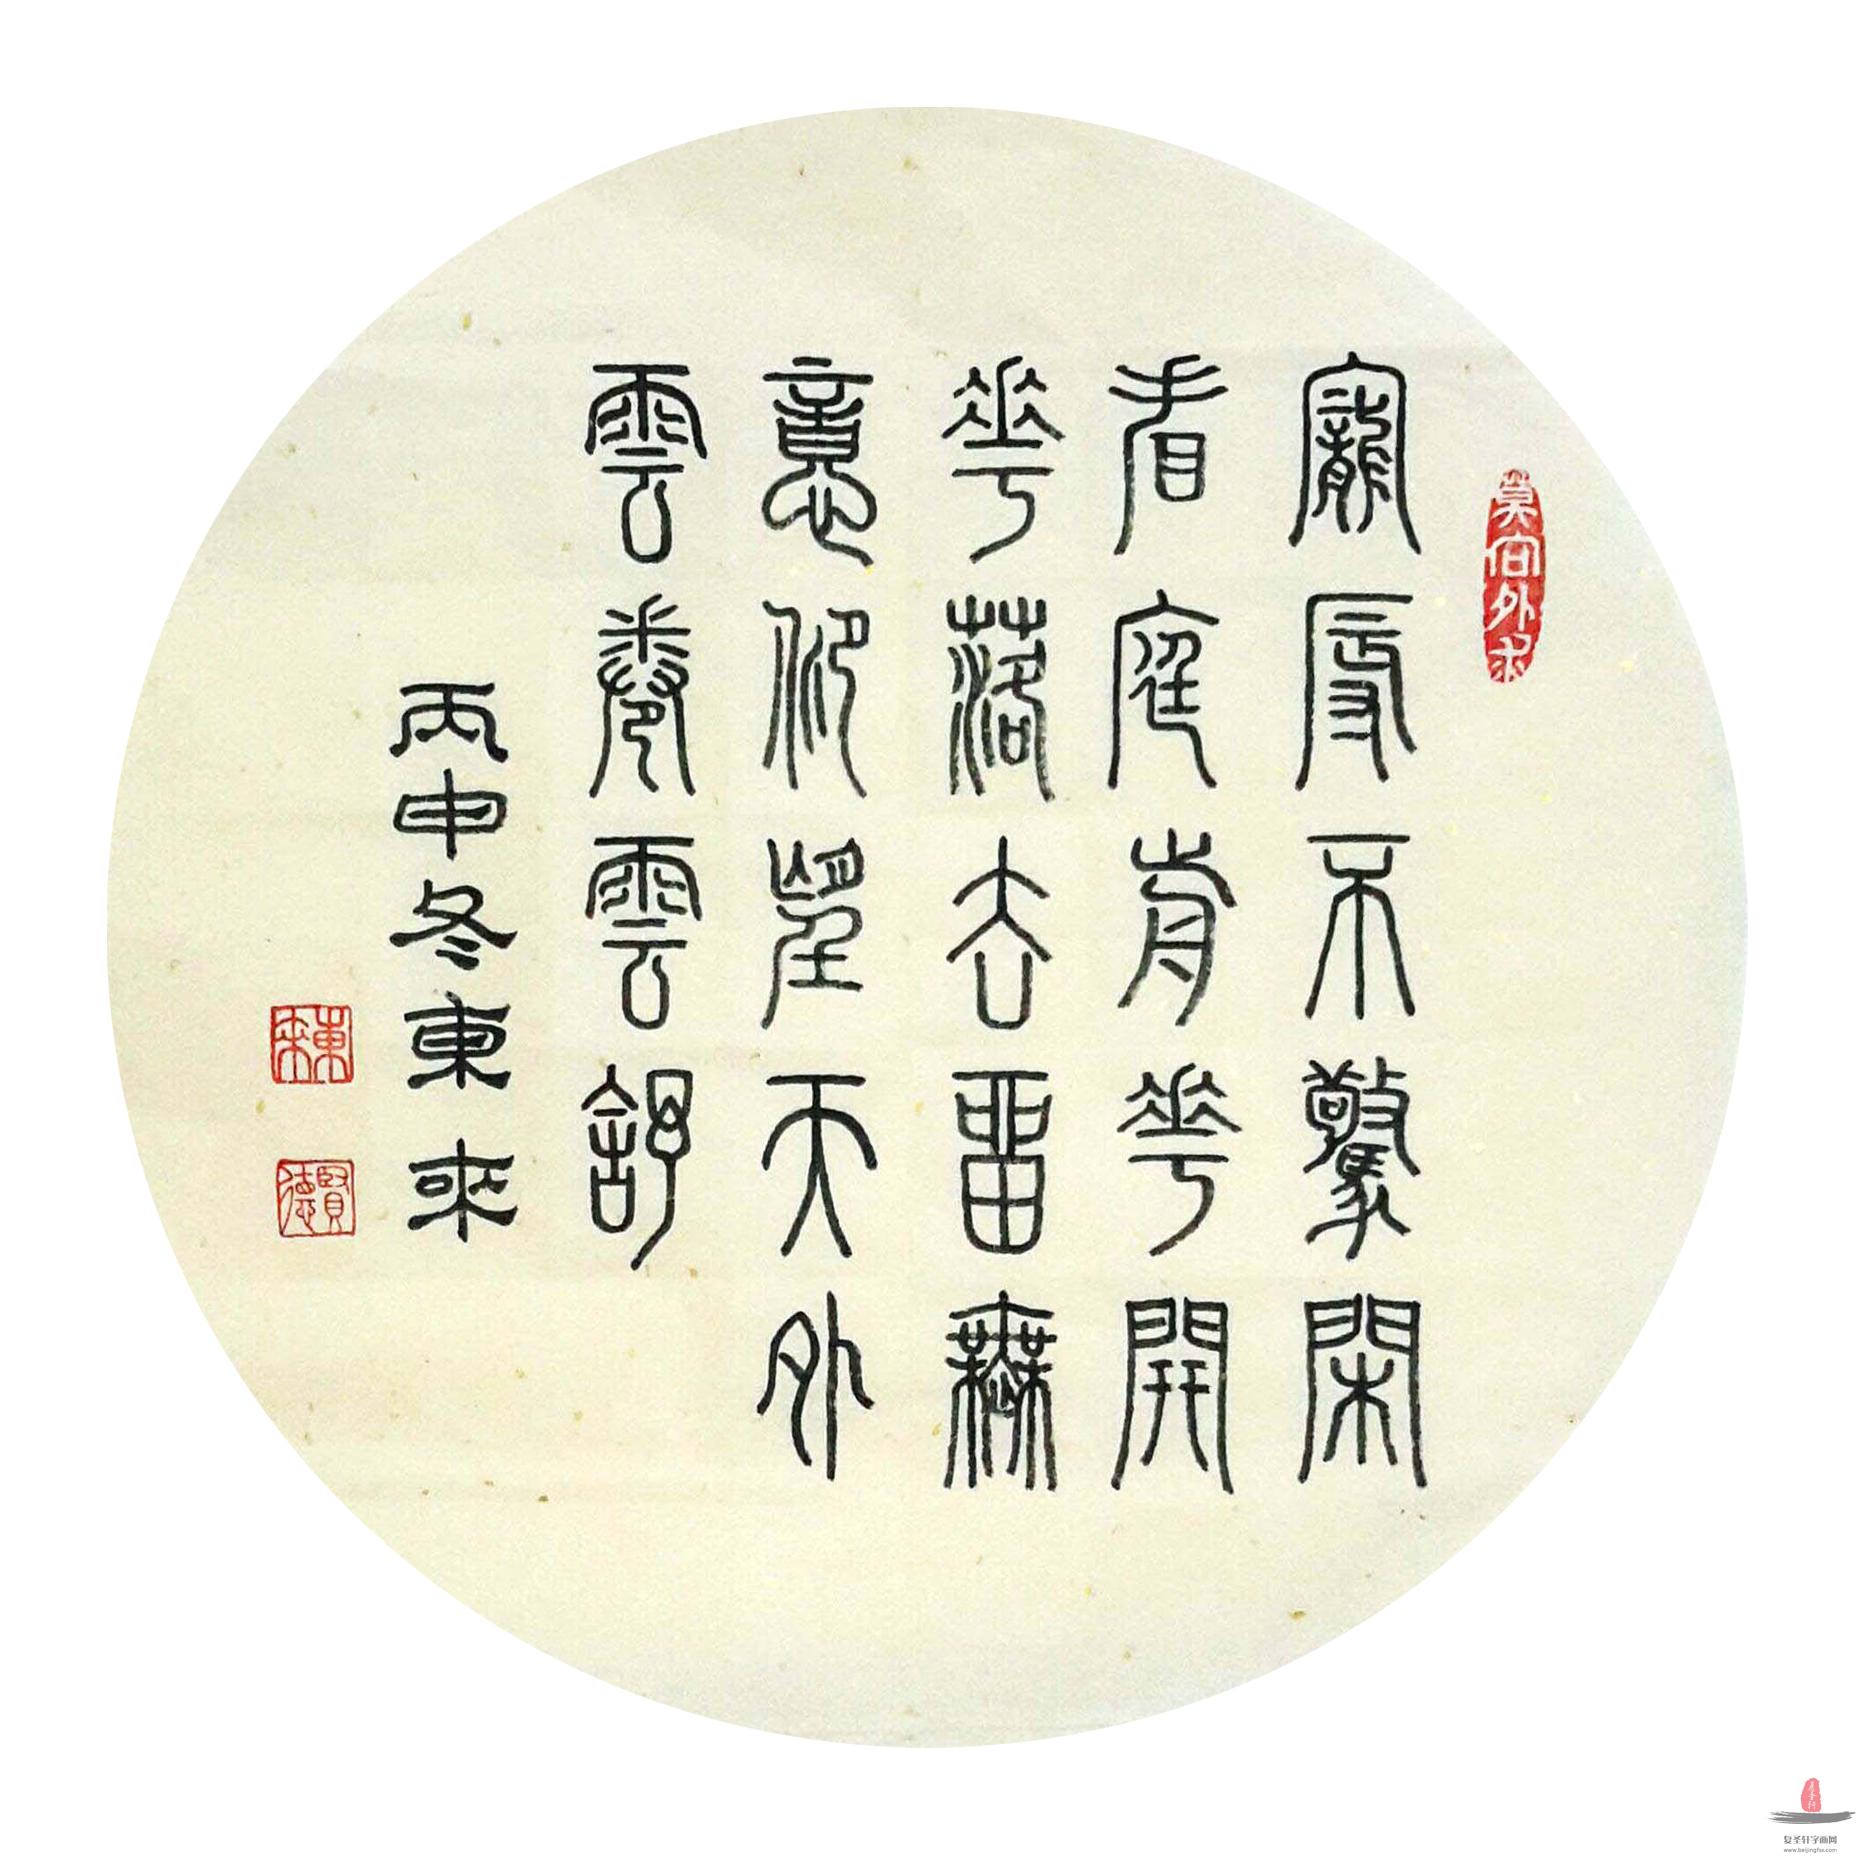 莫向外求
寵辱不驚閑
看庭前華開
華落去留無
意仰望天外
雲卷雲舒
丙申冬東來
東來
賢德
复圣轩字画网
www.beijingfsx.com